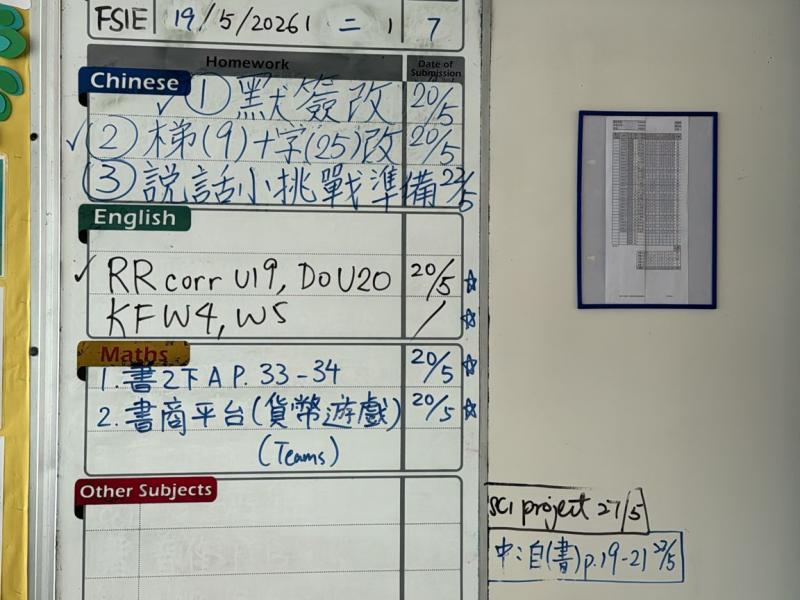 FSIE 19/5/2026 二 7
Homework Date of Submission
Chinese
✓ ① 默簽改 20/5
✓ ② 梯(9)+字(25)改 20/5
③ 說話小挑戰準備 22/5
English
✓ RR corr U19, Do U20 20/5 ☆
KF W4, W5 / ☆
Maths
1. 書2下A P. 33-34 20/5 ☆
2. 書商平台(貨幣遊戲) 20/5 ☆
(Teams)
Other Subjects
SCI project 27/5
中:自(書)p.19-21 22/5